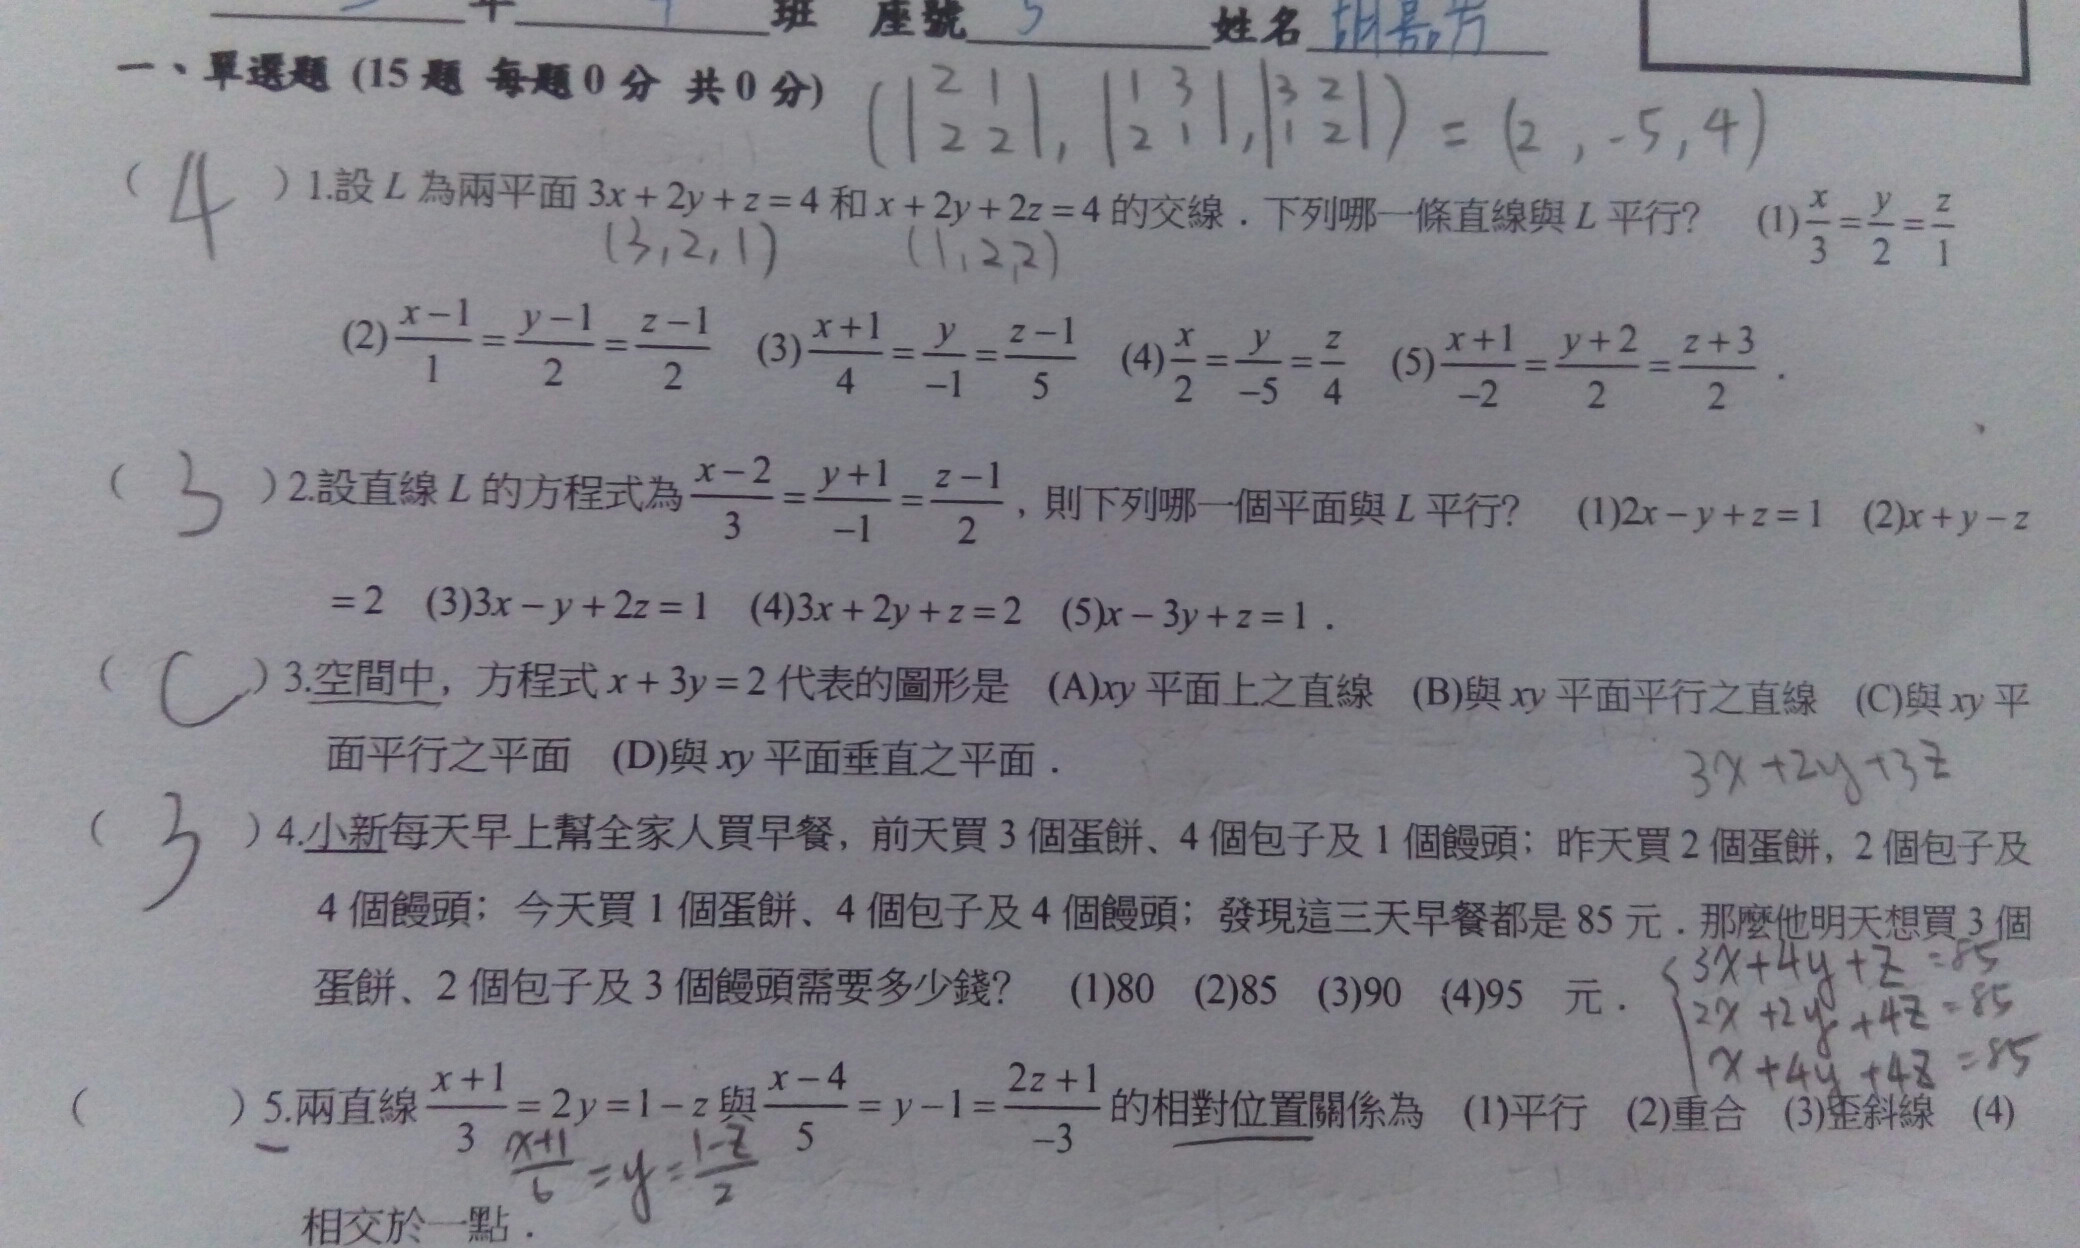 年 班 座號 5 姓名 胡嘉芳
一、單選題 (15題 每題0分 共0分)
(|2 1; 2 2|, |1 3; 2 1|, |3 2; 1 2|) = (2, -5, 4)
( 4 ) 1.設 L 為兩平面 3x + 2y + z = 4 和 x + 2y + 2z = 4 的交線．下列哪一條直線與 L 平行? (1) x/3 = y/2 = z/1
(3,2,1) (1,2,2)
(2) (x−1)/1 = (y−1)/2 = (z−1)/2 (3) (x+1)/4 = y/−1 = (z−1)/5 (4) x/2 = y/−5 = z/4 (5) (x+1)/−2 = (y+2)/2 = (z+3)/2 ．
( 3 ) 2.設直線 L 的方程式為 (x−2)/3 = (y+1)/−1 = (z−1)/2，則下列哪一個平面與 L 平行? (1)2x − y + z = 1 (2)x + y − z
= 2 (3)3x − y + 2z = 1 (4)3x + 2y + z = 2 (5)x − 3y + z = 1．
( C ) 3.空間中，方程式 x + 3y = 2 代表的圖形是 (A)xy 平面上之直線 (B)與 xy 平面平行之直線 (C)與 xy 平
面平行之平面 (D)與 xy 平面垂直之平面．
3x+2y+3z
( 3 ) 4.小新每天早上幫全家人買早餐，前天買 3 個蛋餅、4 個包子及 1 個饅頭；昨天買 2 個蛋餅，2 個包子及
4 個饅頭；今天買 1 個蛋餅、4 個包子及 4 個饅頭；發現這三天早餐都是 85 元．那麼他明天想買 3 個
蛋餅、2 個包子及 3 個饅頭需要多少錢? (1)80 (2)85 (3)90 (4)95 元．
3x+4y+z=85
2x+2y+4z=85
x+4y+4z=85
( ) 5.兩直線 (x+1)/3 = 2y = 1 − z 與 (x−4)/5 = y − 1 = (2z+1)/−3 的相對位置關係為 (1)平行 (2)重合 (3)歪斜線 (4)
(x+1)/6 = y = (1-z)/2
相交於一點．